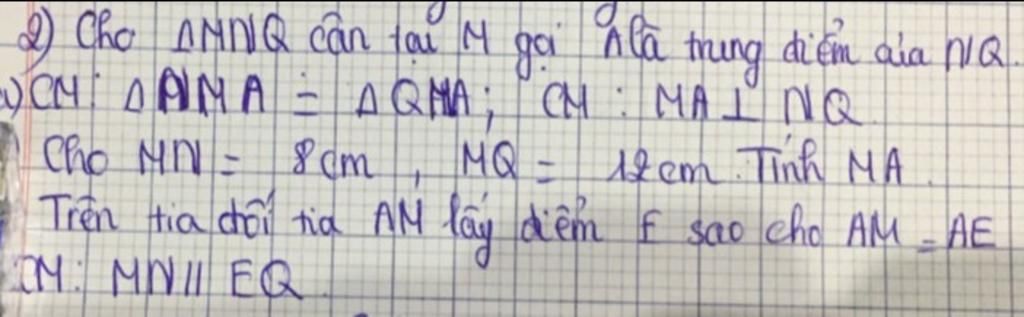 2) Cho ΔMNQ cân tại M gọi A là trung điểm của NQ.
a) CM: ΔNMA = ΔQMA; CM: MA ⊥ NQ
Cho MN = 8cm, MQ = 12cm. Tính MA.
Trên tia đối tia AM lấy điểm E sao cho AM = AE
CM: MN // EQ